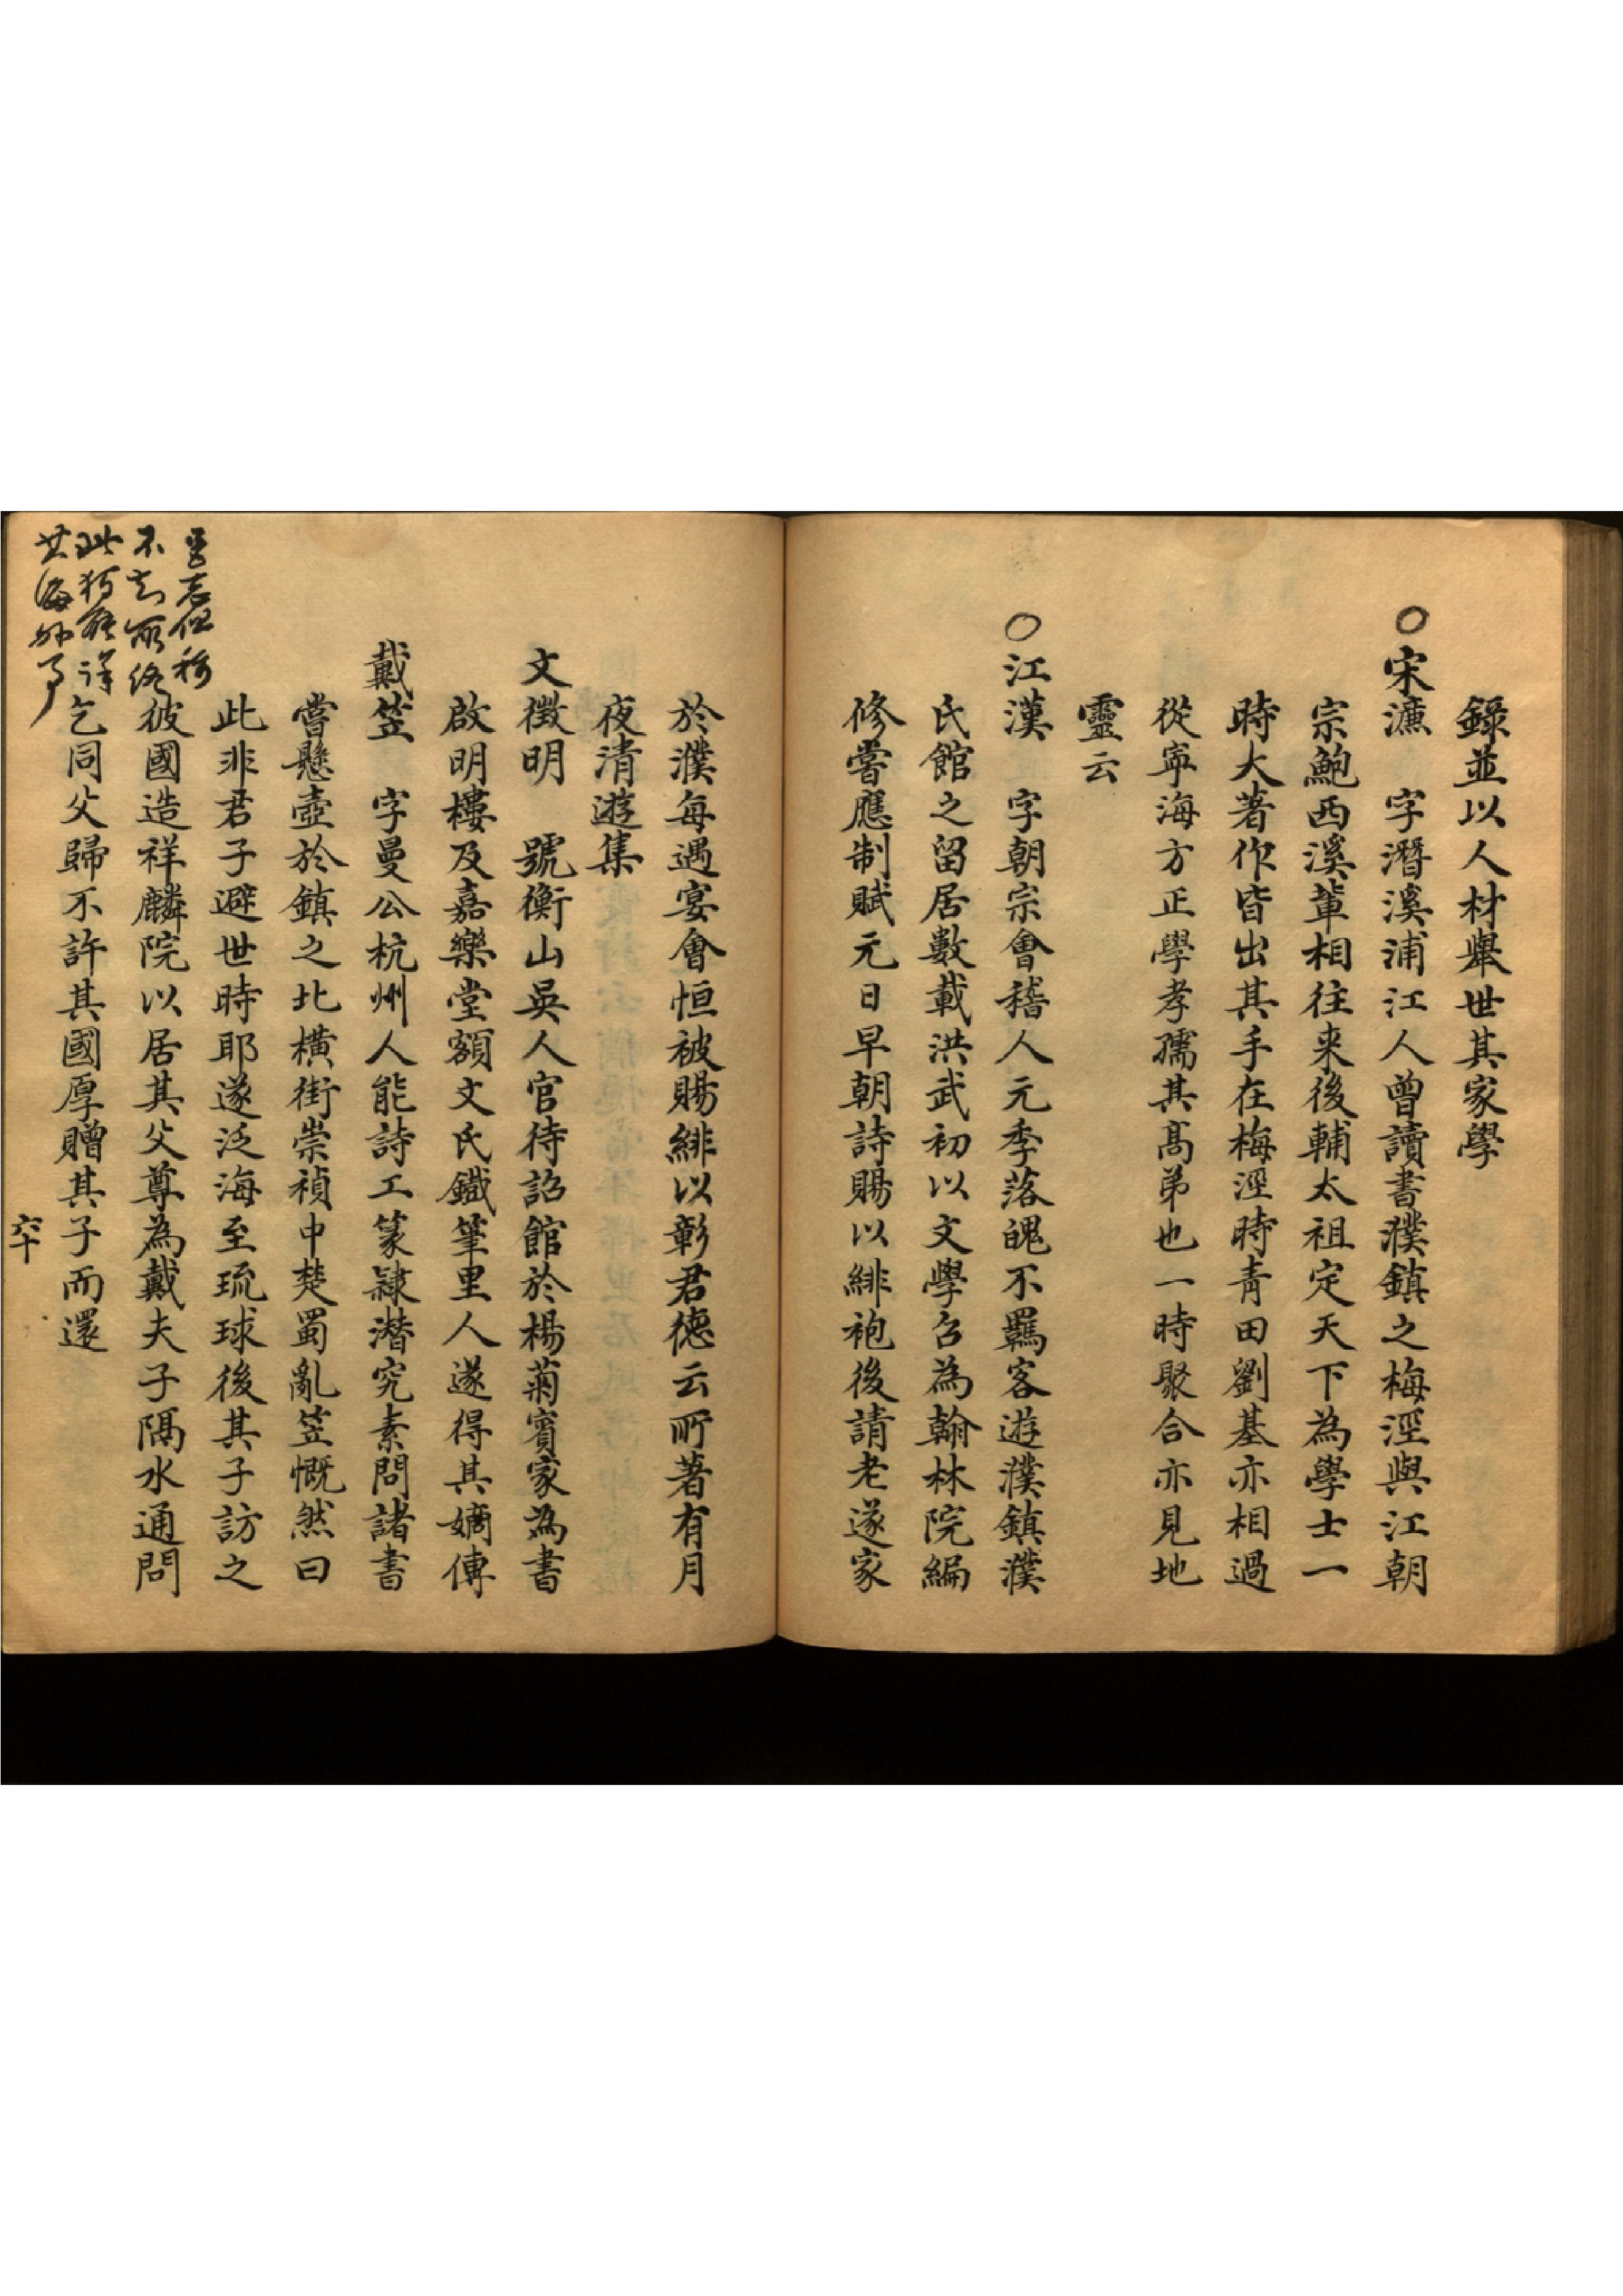 錄並以人材舉世其家學
○宋濂　字潛溪浦江人曾讀書濮鎮之梅涇與江朝
宗鮑西溪輩相往来後輔太祖定天下為學士一
時大著作皆出其手在梅涇時青田劉基亦相過
從寧海方正學孝孺其髙弟也一時聚合亦見地
靈云
○江漢　字朝宗會稽人元季落魄不羈客遊濮鎮濮
氏館之留居數載洪武初以文學召為翰林院編
修嘗應制賦元日早朝詩賜以緋袍後請老遂家
於濮每遇宴會恒被賜緋以彰君德云所著有月
夜清遊集
文徵明　號衡山吳人官待詔館於楊菊賓家為書
啟明樓及嘉樂堂額文氏鐵筆里人遂得其嫡傳
戴笠　字曼公杭州人能詩工篆隸潛究素問諸書
嘗懸壺於鎮之北橫街崇禎中楚蜀亂笠慨然曰
此非君子避世時耶遂泛海至琉球後其子訪之
彼國造祥麟院以居其父尊為戴夫子隔水通問
乞同父歸不許其國厚贈其子而還
志但稱
不知所終
此獨能詳
其海外事
六十